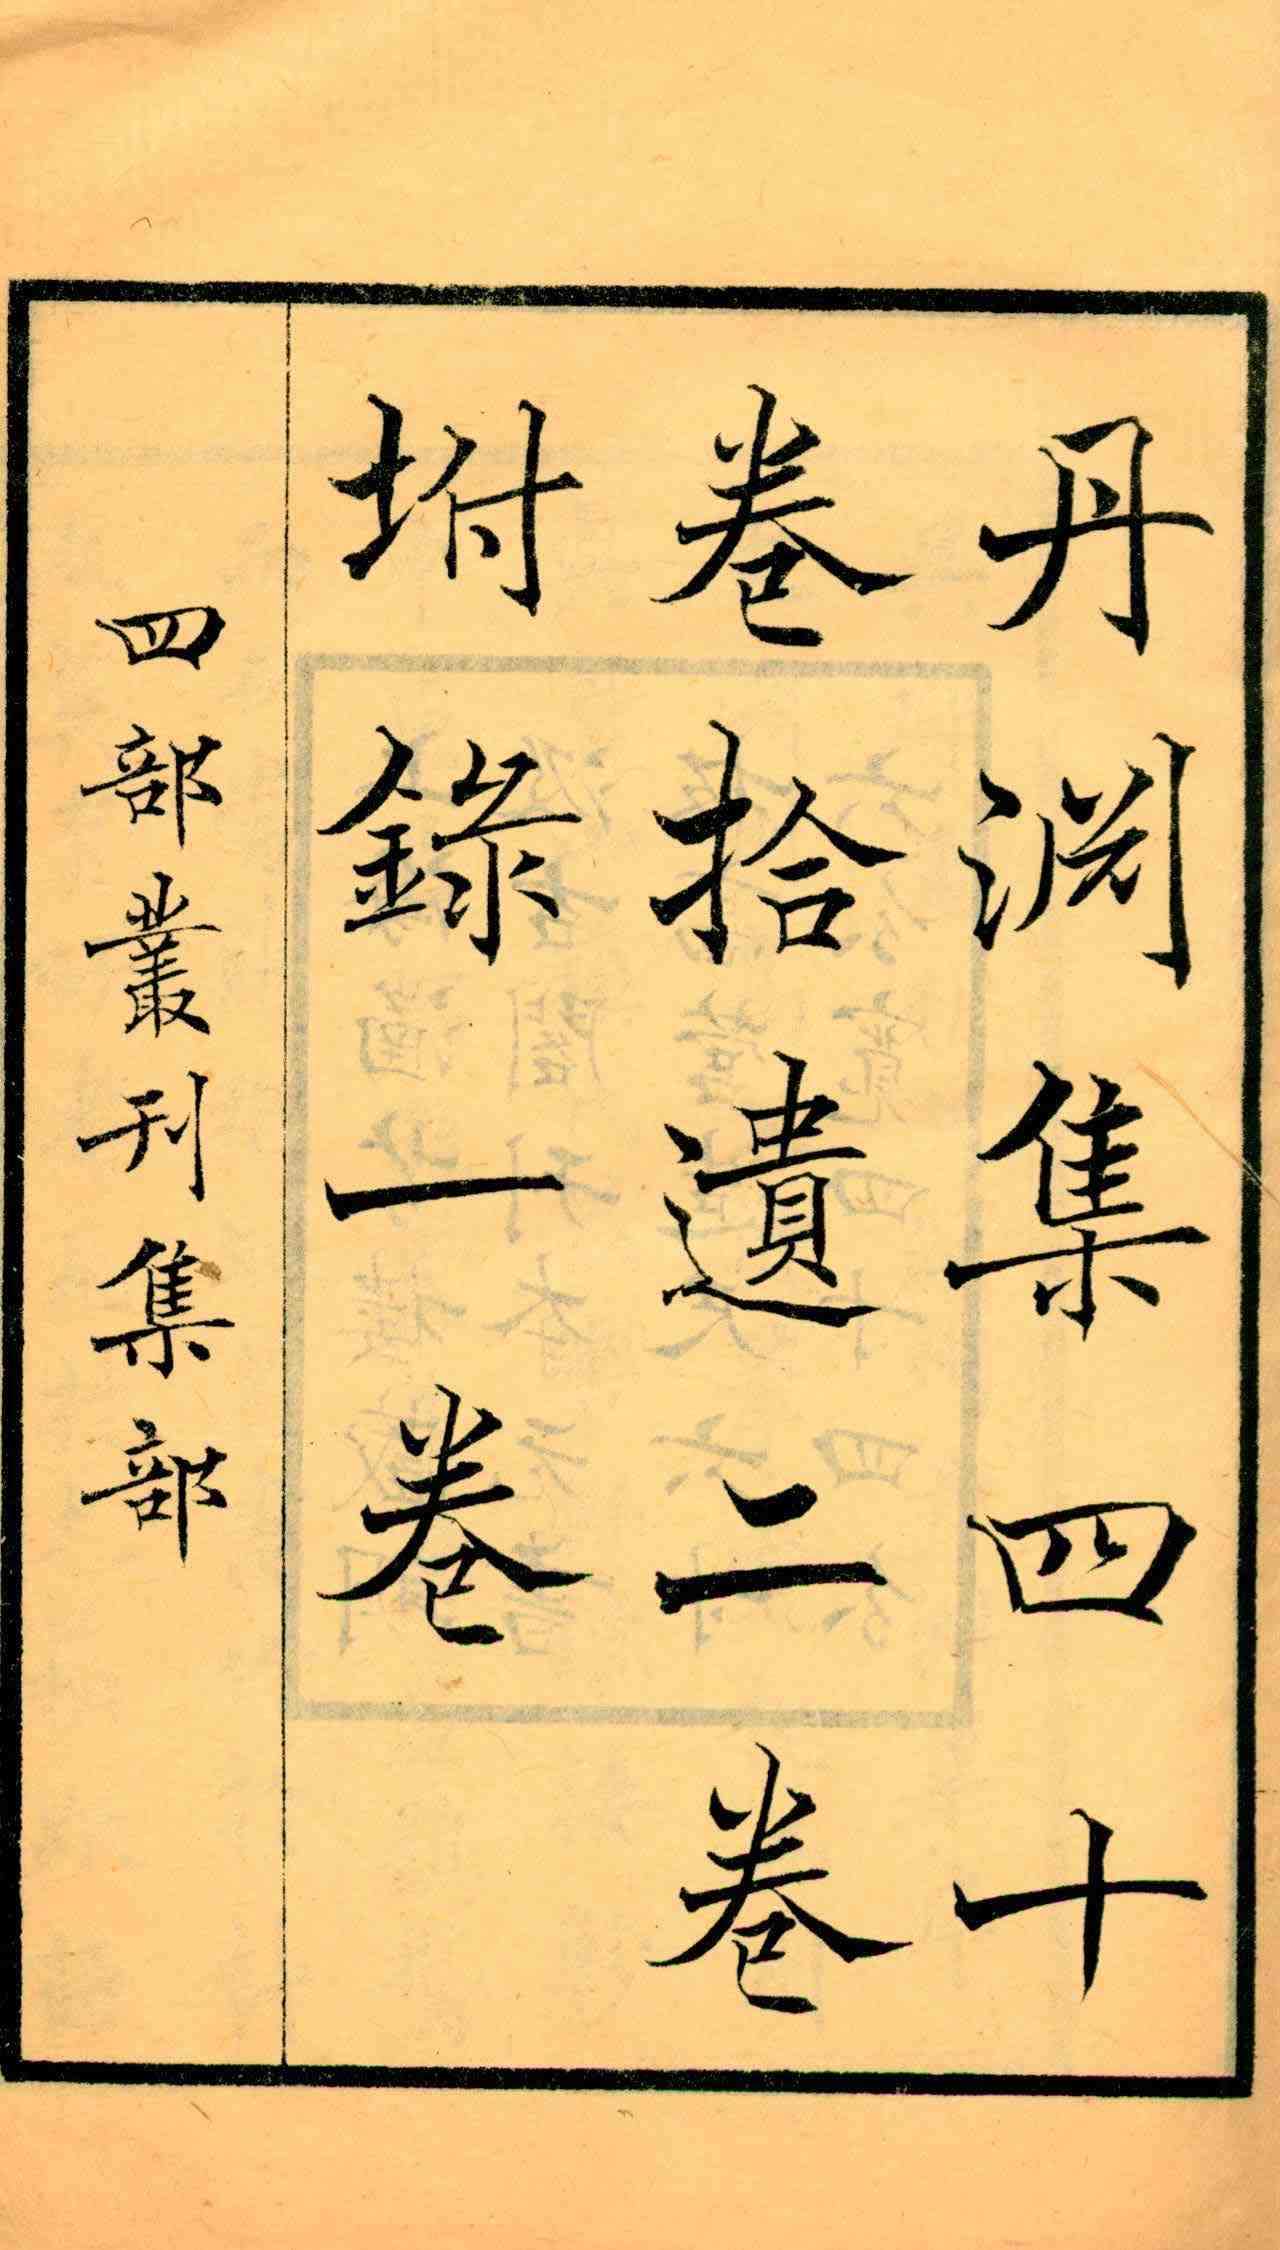 丹淵集四十
卷拾遺二卷
坿錄一卷
四部叢刊集部